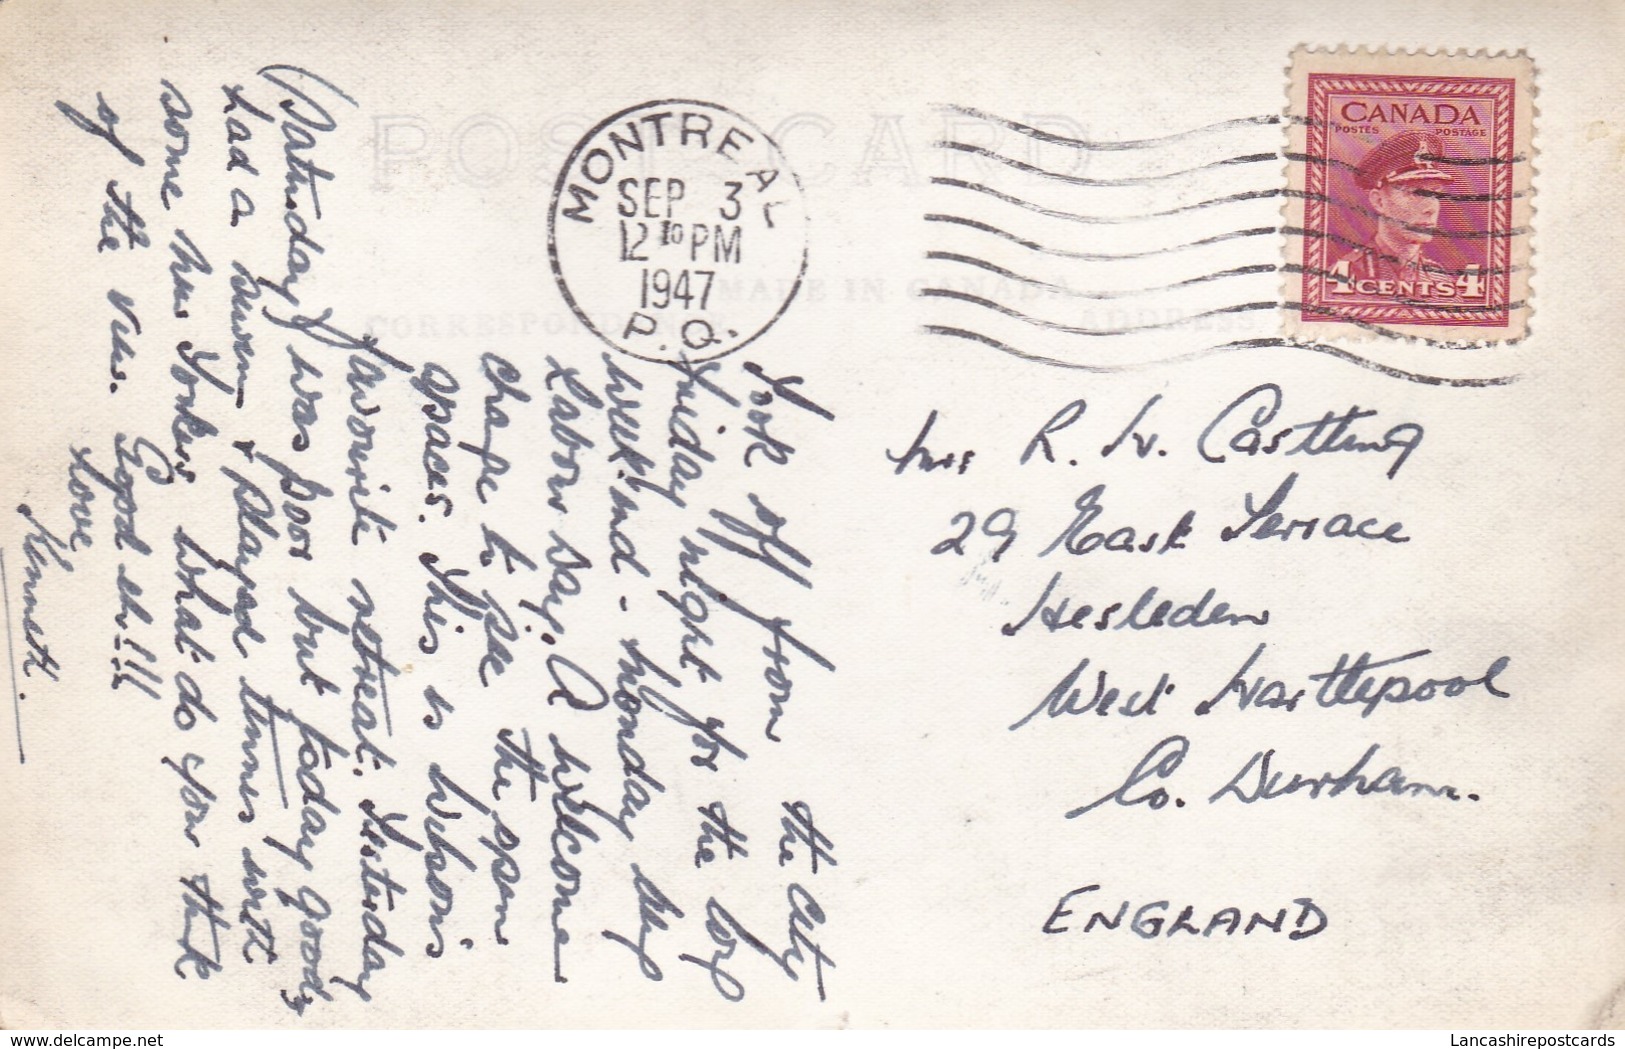 POST CARD
MADE IN CANADA
CORRESPONDENCE
ADDRESS
MONTREAL
SEP 3
12 30 PM
1947
P.Q.
CANADA
POSTES POSTAGE
4 CENTS 4
Took off from the city
Friday night for the long
week-end - Monday being
Labour Day. A welcome
change to see the open
spaces. This is
favourite retreat. Yesterday
(Saturday) was poor but today good &
had a swim & played tennis with
some New Yorkers. What do you think
of the view. Good eh!!!
Love
Kenneth.
Mrs R. W. Castling
29 East Terrace
Hesleden
West Hartlepool
Co. Durham.
ENGLAND
delcampe.net
Lancashirepostcards